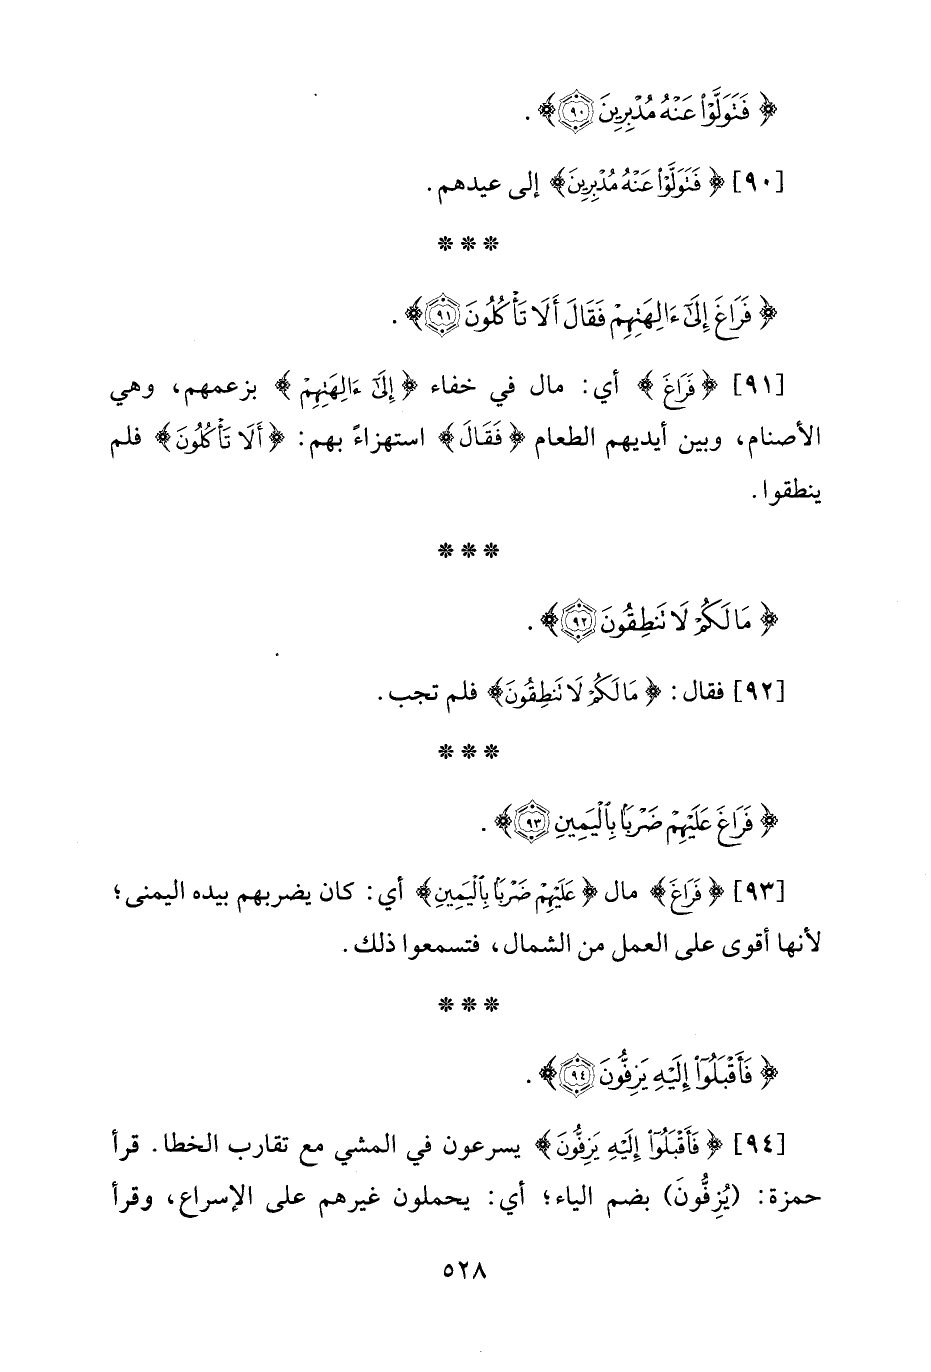 ﴿ فَتَوَلَّوْا عَنْهُ مُدْبِرِينَ ﴿٩٠﴾ ﴾ .
[٩٠] ﴿ فَتَوَلَّوْا عَنْهُ مُدْبِرِينَ ﴾ إلى عيدهم .
* * *
﴿ فَرَاغَ إِلَىٰٓ ءَالِهَتِهِمْ فَقَالَ أَلَا تَأْكُلُونَ ﴿٩١﴾ ﴾ .
[٩١] ﴿ فَرَاغَ ﴾ أي : مال في خفاء ﴿ إِلَىٰٓ ءَالِهَتِهِمْ ﴾ بزعمهم، وهي
الأصنام، وبين أيديهم الطعام ﴿ فَقَالَ ﴾ استهزاءً بهم : ﴿ أَلَا تَأْكُلُونَ ﴾ فلم
ينطقوا .
* * *
﴿ مَا لَكُمْ لَا تَنطِقُونَ ﴿٩٢﴾ ﴾ .
[٩٢] فقال : ﴿ مَا لَكُمْ لَا تَنطِقُونَ ﴾ فلم تجب .
* * *
﴿ فَرَاغَ عَلَيْهِمْ ضَرْبًۢا بِٱلْيَمِينِ ﴿٩٣﴾ ﴾ .
[٩٣] ﴿ فَرَاغَ ﴾ مال ﴿ عَلَيْهِمْ ضَرْبًۢا بِٱلْيَمِينِ ﴾ أي : كان يضربهم بيده اليمنى؛
لأنها أقوى على العمل من الشمال، فتسمعوا ذلك .
* * *
﴿ فَأَقْبَلُوٓا إِلَيْهِ يَزِفُّونَ ﴿٩٤﴾ ﴾ .
[٩٤] ﴿ فَأَقْبَلُوٓا إِلَيْهِ يَزِفُّونَ ﴾ يسرعون في المشي مع تقارب الخطا . قرأ
حمزة : (يُزِفُّونَ) بضم الياء؛ أي : يحملون غيرهم على الإسراع، وقرأ
٥٢٨